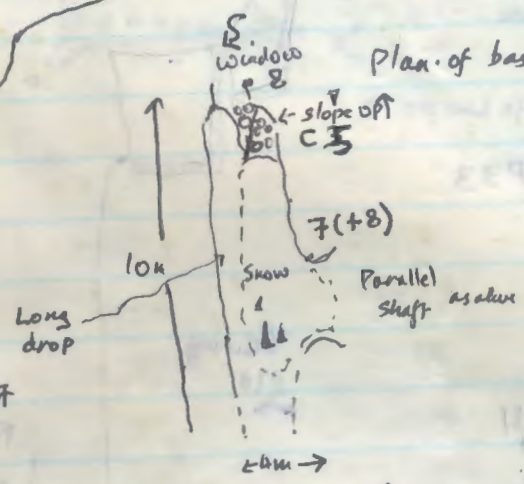 S
window
8
Plan of bas
← slope up↑
C 5
7(+8)
10m
Snow
1
Parallel
shaft as above
Long
drop
←4m→